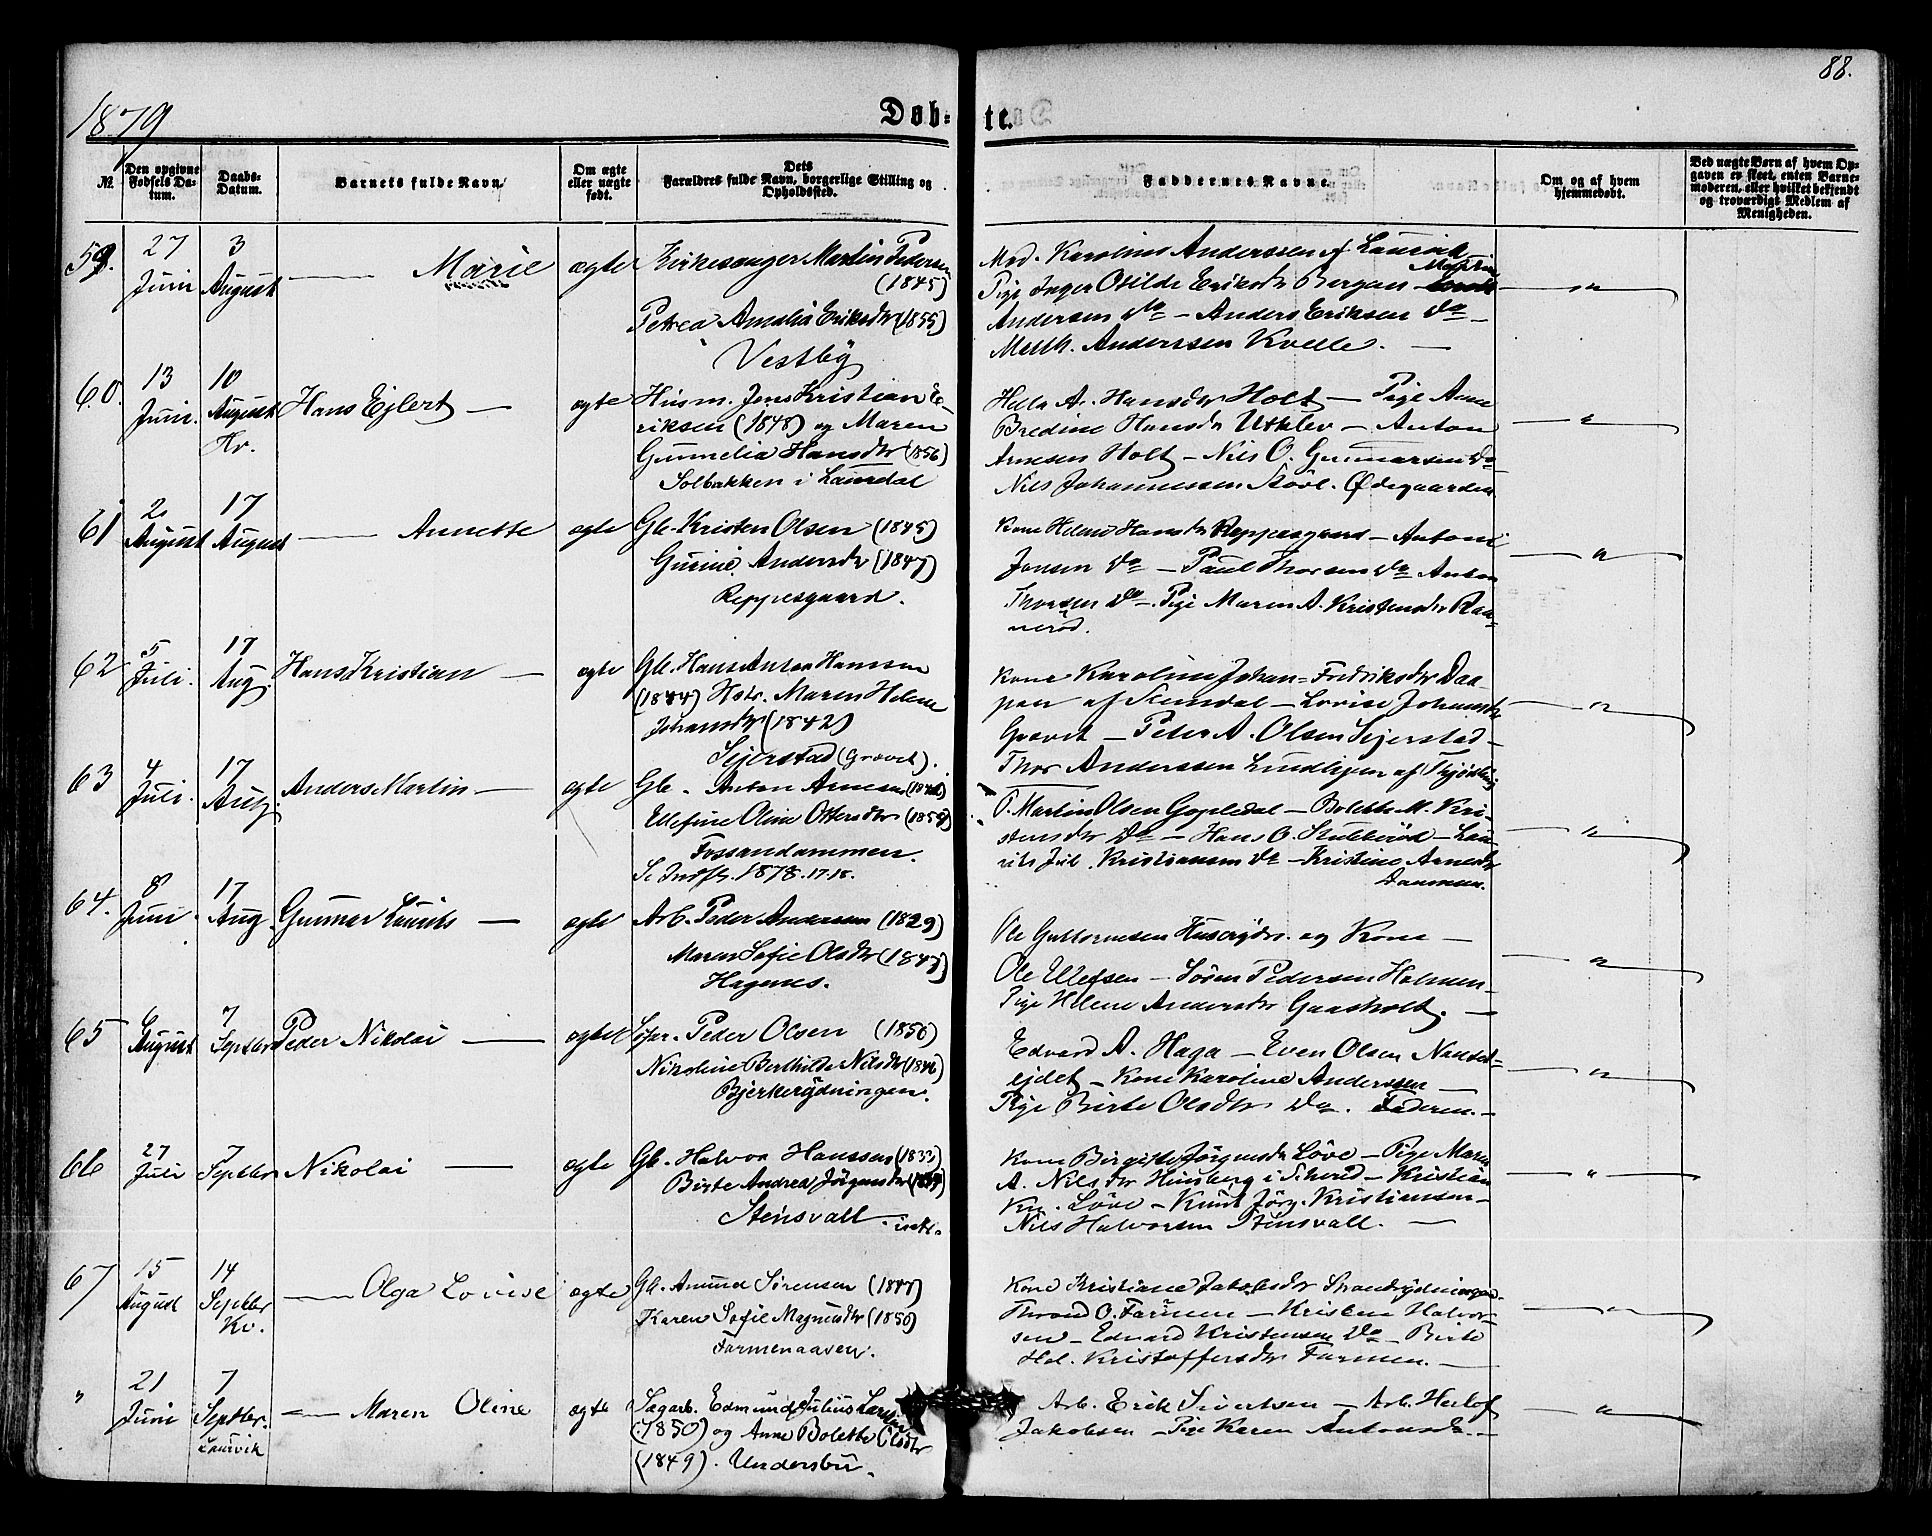 88.
1879
Døb- te.
№
Den opgivne Fødsels Datum.
Daabs-Datum.
Barnets fulde Navn.
Om ægte eller uægte født.
Dets Forældres fulde Navn, borgerlige Stilling og Opholdssted.
Faddernes Navne.
Om og af hvem hjemmedøbt.
Ved uægte Børn af hvem Opgaven er skeet, enten Barnemoderen, eller hvilket bekjendt og troværdigt Medlem af Menigheden.
59. 27 Juni 3 August — Marie ægte
Kirkesanger Martin Pedersen
(1845)
Petrea Amalia Eriksdtr (1855)
Vestby
Mad. Karoline Anderssen af Laurvik
Pige Inger Otilde Eriksdtr Bergan —
Andersen Do — Anders Eriksen Do —
Math. Anderssen Kvelle. —
60. 13 Juni. 10 August Kv. Hans Ejlert — ægte
Husm. Jens Kristian E-
riksen (1848) og Maren
Gunnelia Hansdtr (1856)
Solbakken i Laurdal
Helle A. Hansdtr Holt — Pige Anne
Bredine Hansdtr Utklev — Anton
Arnesen Holt — Nils O. Gunnarsen Do
Nils Johannessen Ødegaarden
61 2 August 17 August — Annette ægte
Gb. Kristen Olsen (1845)
Gurine Andersdtr (1847)
Reppesgaard.
Kone Helene Hansdtr Reppesgaard — Anton
Jansen Do — Paul Thorsen Do Anton
Thorsen Do — Pige Maren A. Kristensdtr Ran-
nerød.
62 5 Juli. 17 Aug. Hans Kristian — ægte
Gb. Hans Anton Hansen
(1844) Hstr. Maren Helene
Johansdtr (1842)
Sejerstad (Gravet).
Kone Karoline Johan= Fredriksdtr Daa-
pan af Slemdal — Lovise Johansdtr
Gravet — Peter A. Olsen Sejerstad —
Thor Anderssen Lindhjem af Thjødling
63 4 Juli. 17 Aug. Anders Martin — ægte
Gb. Anton Arnesen
Ellefine Oline Ottersdtr
Fossandammen.
Se Indft. 1878. 17.18.
P. Martin Olsen Gopledal — Bolette M. Kri-
stensdtr Do — Hans O. Stubberød — Lau-
rits Jul. Kristiansen Do — Kristine Arnesdtr
Dammen.
64. 8 Juni 17 Aug. Gunnar Laurits — ægte
Arb. Peder Andersen (1829)
Maren Sofie Olsdtr (1847)
Hagenes.
Ole Guttormsen Huserydn. og Kone —
Ole Ellefsen — Søren Pedersen Holmen —
Pige Helene Andersdtr Gaasholt. —
65 6 August 7 Septbr Peder Nikolai — ægte
Søfar. Peder Olsen (1856)
Nikoline Berthilde Nilsdtr (1846)
Bjerkerydningen.
Edvard A. Haga — Even Olsen Nanset-
ejdet — Kone Karoline Anderssen —
Pige Birte Olsdtr Do. Faderen. —
66 27 Juli 7 Septbr Nikolai — ægte
Gb. Halvor Hanssen (1833)
Birte Andrea Jørgensdtr
Stensvall
Kone Birgitte Jørgensdtr Løve — Pige Maren
A. Nilsdtr Himberg i Scherid — Kristian
Kr. Løve — Knut Jørg. Kristiansen —
Nils Halvorsen Stensvall. —
67 15 August 14 Septbr Kv. — Olga Lovise ægte
Gb. Amund Sørensen (1847)
Karen Sofie Magnusdtr (1850)
Farmenaasen.
Kone Kristiane Jakobsdtr Strandrydningen
Thrond O. Farmen — Kristine Halvor-
sen — Edvard Kristensen Do — Birte
Hel. Kristoffersdtr Farmen. —
" 21 Juni 7 Septbr. Laurvik — Maren Oline ægte
Sagarb. Edmund Julius Larsen
(1850) og Anne Bolette Olsdtr
(1849). Undersbu.
Arb. Erik Sivertsen — Arb. Herlof
Jakobsen — Pige Karen Antonsdtr. —